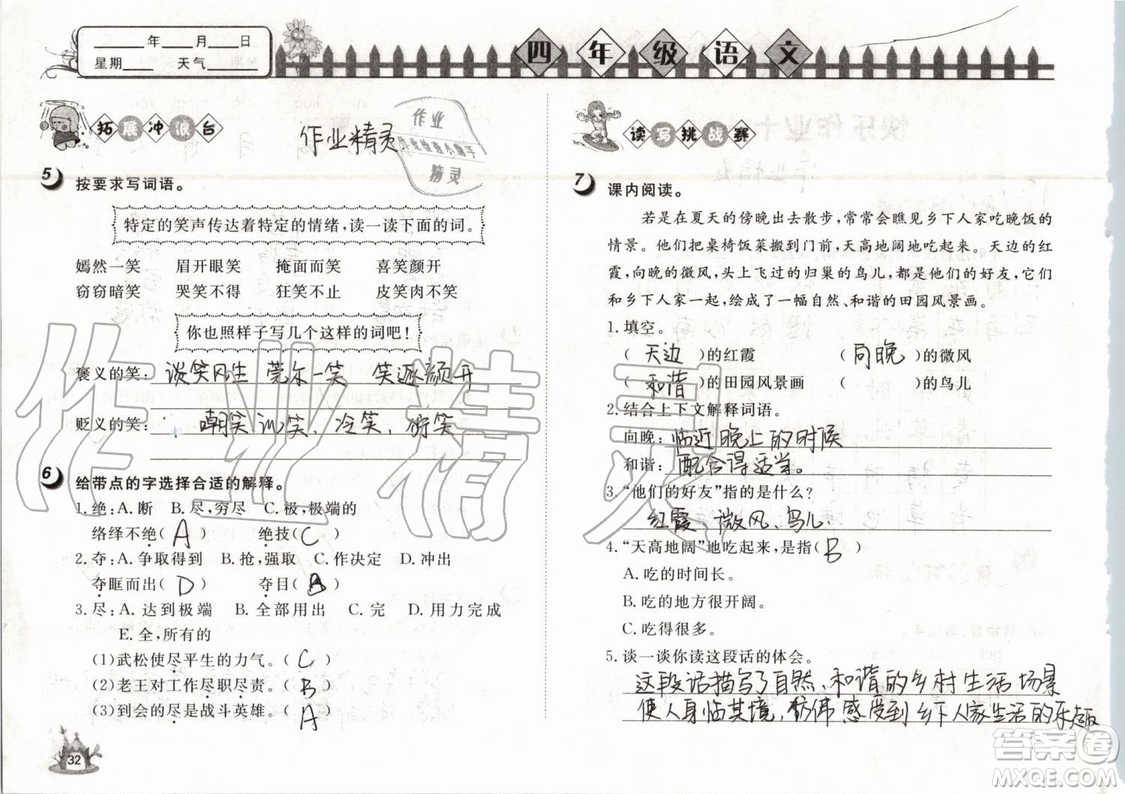 ____年____月____日
星期____ 天气____
四年级语文
拓展冲浪台
作业精灵
作业
精灵
5 按要求写词语。
特定的笑声传达着特定的情绪,读一读下面的词。
嫣然一笑 眉开眼笑 掩面而笑 喜笑颜开
窃窃暗笑 哭笑不得 狂笑不止 皮笑肉不笑
你也照样子写几个这样的词吧!
褒义的笑: 谈笑风生 莞尔一笑 笑逐颜开
贬义的笑: 嘲笑、讥笑、冷笑、奸笑
6 给带点的字选择合适的解释。
1. 绝:A. 断 B. 尽,穷尽 C. 极,极端的
络绎不绝( A ) 绝技( C )
2. 夺:A. 争取得到 B. 抢,强取 C. 作决定 D. 冲出
夺眶而出( D ) 夺目( B )
3. 尽:A. 达到极端 B. 全部用出 C. 完 D. 用力完成
E. 全,所有的
(1)武松使尽平生的力气。( C )
(2)老王对工作尽职尽责。( B )
(3)到会的尽是战斗英雄。( A )
32
读写挑战赛
7 课内阅读。
若是在夏天的傍晚出去散步,常常会瞧见乡下人家吃晚饭的
情景。他们把桌椅饭菜搬到门前,天高地阔地吃起来。天边的红
霞,向晚的微风,头上飞过的归巢的鸟儿,都是他们的好友,它们
和乡下人家一起,绘成了一幅自然、和谐的田园风景画。
1. 填空。
( 天边 )的红霞 ( 向晚 )的微风
( 和谐 )的田园风景画 ( )的鸟儿
2. 结合上下文解释词语。
向晚: 临近晚上的时候
和谐: 配合得适当。
3. “他们的好友”指的是什么?
红霞、微风、鸟儿
4. “天高地阔”地吃起来,是指( B )
A. 吃的时间长。
B. 吃的地方很开阔。
C. 吃得很多。
5. 谈一谈你读这段话的体会。
这段话描写了自然、和谐的乡村生活场景
使人身临其境,仿佛感受到乡下人家生活的乐趣
作业精灵
答案卷
MXQE.COM